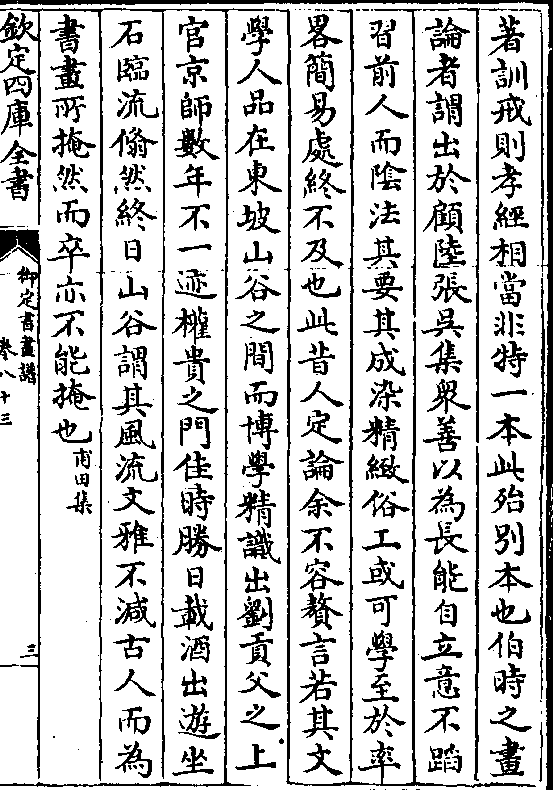 著訓戒則孝經相當非特一本此殆別本也伯時之畫
論者謂出於顧陸張吳集衆善以為長能自立意不蹈
習前人而陰法其要其成染精緻俗工或可學至於率
畧簡易處終不及也此昔人定論余不容贅言若其文
學人品在東坡山谷之間而博學精識出劉貢父之上
官京師數年不一迹權貴之門佳時勝日載酒出遊坐
石臨流翛然終日山谷謂其風流文雅不減古人而為
書畫所掩然而卒亦不能掩也甫田集
欽定四庫全書
御定書畫譜
卷八十三
三